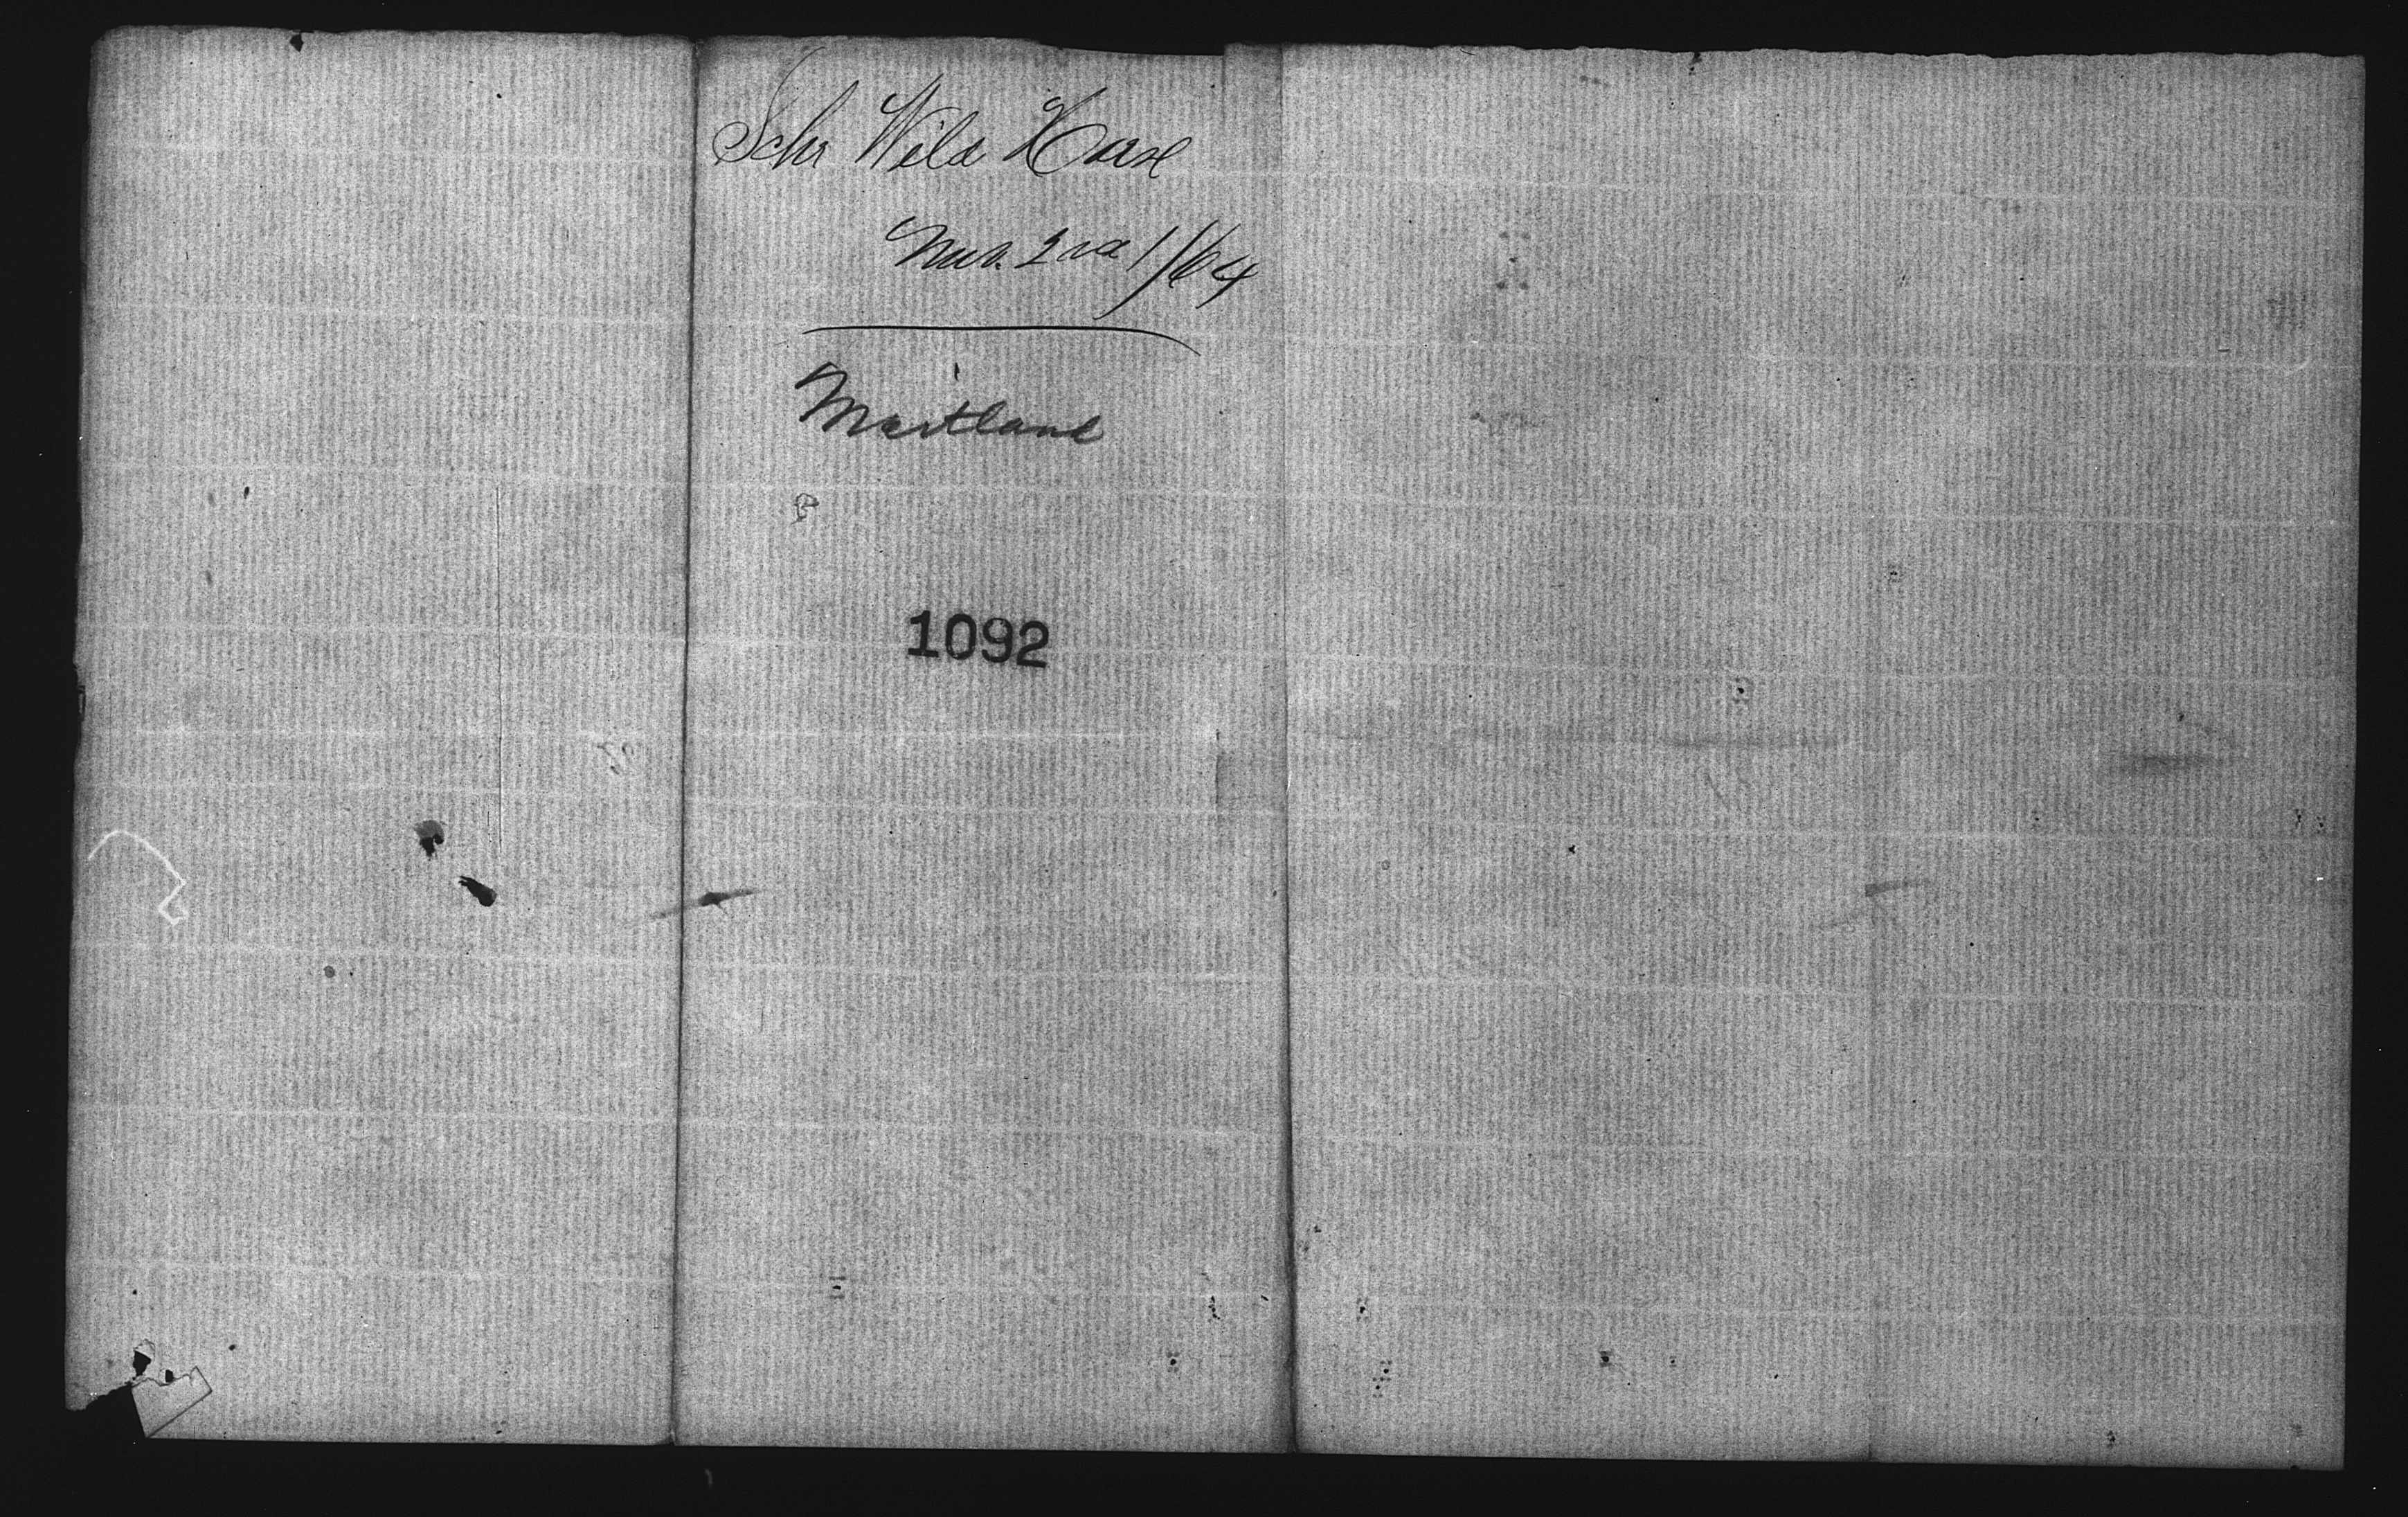 Schr Wild Horse
Nov. 2nd /64
Maitland
1092